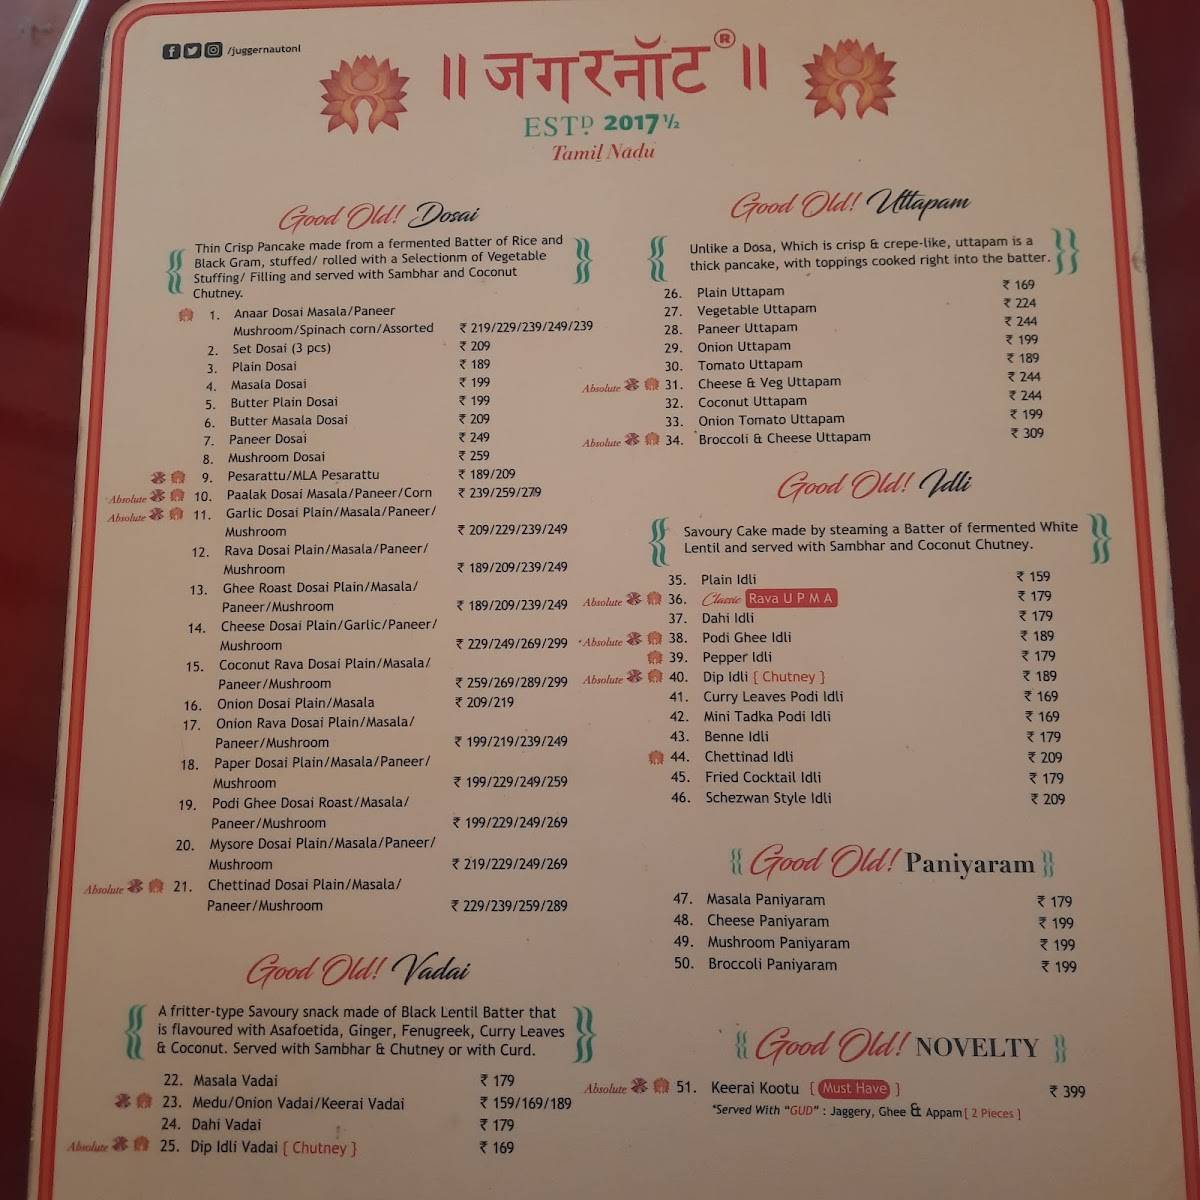 /juggernautonl
॥ जगरनॉट ® ॥
ESTD. 2017 ½
Tamil Nadu
Good Old! Dosai
Thin Crisp Pancake made from a fermented Batter of Rice and
Black Gram, stuffed/ rolled with a Selectionm of Vegetable
Stuffing/ Filling and served with Sambhar and Coconut
Chutney.
1. Anaar Dosai Masala/Paneer
Mushroom/Spinach corn/Assorted ₹ 219/229/239/249/239
2. Set Dosai (3 pcs) ₹ 209
3. Plain Dosai ₹ 189
4. Masala Dosai ₹ 199
5. Butter Plain Dosai ₹ 199
6. Butter Masala Dosai ₹ 209
7. Paneer Dosai ₹ 249
8. Mushroom Dosai ₹ 259
9. Pesarattu/MLA Pesarattu ₹ 189/209
Absolute 10. Paalak Dosai Masala/Paneer/Corn ₹ 239/259/279
Absolute 11. Garlic Dosai Plain/Masala/Paneer/
Mushroom ₹ 209/229/239/249
12. Rava Dosai Plain/Masala/Paneer/
Mushroom ₹ 189/209/239/249
13. Ghee Roast Dosai Plain/Masala/
Paneer/Mushroom ₹ 189/209/239/249
14. Cheese Dosai Plain/Garlic/Paneer/
Mushroom ₹ 229/249/269/299
15. Coconut Rava Dosai Plain/Masala/
Paneer/Mushroom ₹ 259/269/289/299
16. Onion Dosai Plain/Masala ₹ 209/219
17. Onion Rava Dosai Plain/Masala/
Paneer/Mushroom ₹ 199/219/239/249
18. Paper Dosai Plain/Masala/Paneer/
Mushroom ₹ 199/229/249/259
19. Podi Ghee Dosai Roast/Masala/
Paneer/Mushroom ₹ 199/229/249/269
20. Mysore Dosai Plain/Masala/Paneer/
Mushroom ₹ 219/229/249/269
Absolute 21. Chettinad Dosai Plain/Masala/
Paneer/Mushroom ₹ 229/239/259/289
Good Old! Vadai
A fritter-type Savoury snack made of Black Lentil Batter that
is flavoured with Asafoetida, Ginger, Fenugreek, Curry Leaves
& Coconut. Served with Sambhar & Chutney or with Curd.
22. Masala Vadai ₹ 179
23. Medu/Onion Vadai/Keerai Vadai ₹ 159/169/189
24. Dahi Vadai ₹ 179
Absolute 25. Dip Idli Vadai [ Chutney ] ₹ 169
Good Old! Uttapam
Unlike a Dosa, Which is crisp & crepe-like, uttapam is a
thick pancake, with toppings cooked right into the batter.
26. Plain Uttapam ₹ 169
27. Vegetable Uttapam ₹ 224
28. Paneer Uttapam ₹ 244
29. Onion Uttapam ₹ 199
30. Tomato Uttapam ₹ 189
Absolute 31. Cheese & Veg Uttapam ₹ 244
32. Coconut Uttapam ₹ 244
33. Onion Tomato Uttapam ₹ 199
Absolute 34. Broccoli & Cheese Uttapam ₹ 309
Good Old! Idli
Savoury Cake made by steaming a Batter of fermented White
Lentil and served with Sambhar and Coconut Chutney.
35. Plain Idli ₹ 159
Absolute 36. Classic Rava U P M A ₹ 179
37. Dahi Idli ₹ 179
Absolute 38. Podi Ghee Idli ₹ 189
39. Pepper Idli ₹ 179
Absolute 40. Dip Idli [ Chutney ] ₹ 189
41. Curry Leaves Podi Idli ₹ 169
42. Mini Tadka Podi Idli ₹ 169
43. Benne Idli ₹ 179
44. Chettinad Idli ₹ 209
45. Fried Cocktail Idli ₹ 179
46. Schezwan Style Idli ₹ 209
Good Old! Paniyaram
47. Masala Paniyaram ₹ 179
48. Cheese Paniyaram ₹ 199
49. Mushroom Paniyaram ₹ 199
50. Broccoli Paniyaram ₹ 199
Good Old! NOVELTY
Absolute 51. Keerai Kootu { Must Have } ₹ 399
*Served With "GUD" : Jaggery, Ghee & Appam [ 2 Pieces ]